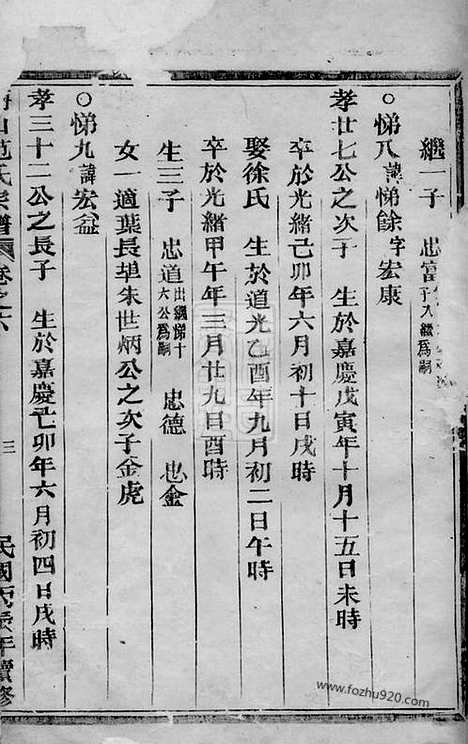 繼一子 忠富子入繼爲嗣
○悌八諱悌餘字宏康
孝廿七公之次子 生於嘉慶戊寅年十月十五日未時
卒於光緒己卯年六月初十日戌時
娶徐氏 生於道光乙酉年九月初二日午時
卒於光緒甲午年三月廿九日酉時
生三子 忠道出繼悌十六公爲嗣 忠德 忠金
女一適葉長埠朱世炳公之次子金虎
○悌九諱宏益
孝三十二公之長子 生於嘉慶己卯年六月初四日戌時
山范氏宗譜 卷之六 三 民國丙辰年續修
www.fozhu920.com